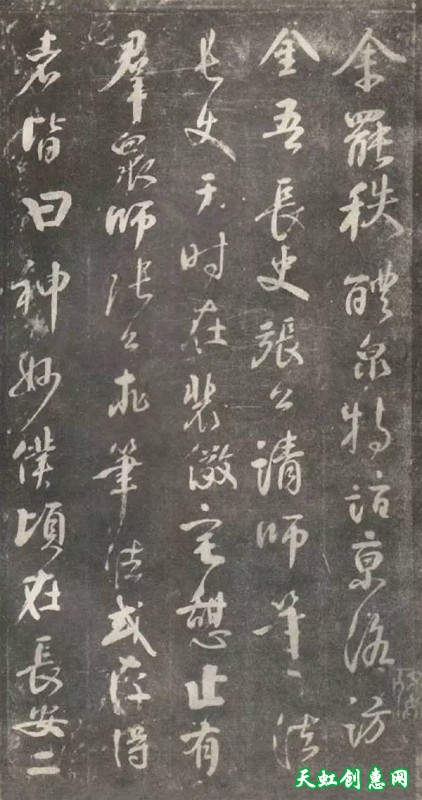 余罷秩醴泉特詣京洛訪
金吾長史張公請師筆法
長史于時在裴儆宅憩止有
羣衆師張公求筆法或存得
者皆曰神妙僕頃在長安二
天虹创惠网